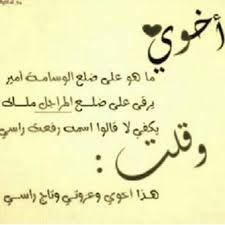 أخوي
ما هو على ضلع الوسامة أمير
يرقى على ضلع المراجل ملك
يكفي لا قالوا اسمه رفعت راسي
وقلت :
هذا اخوي وعزوتي وتاج راسي